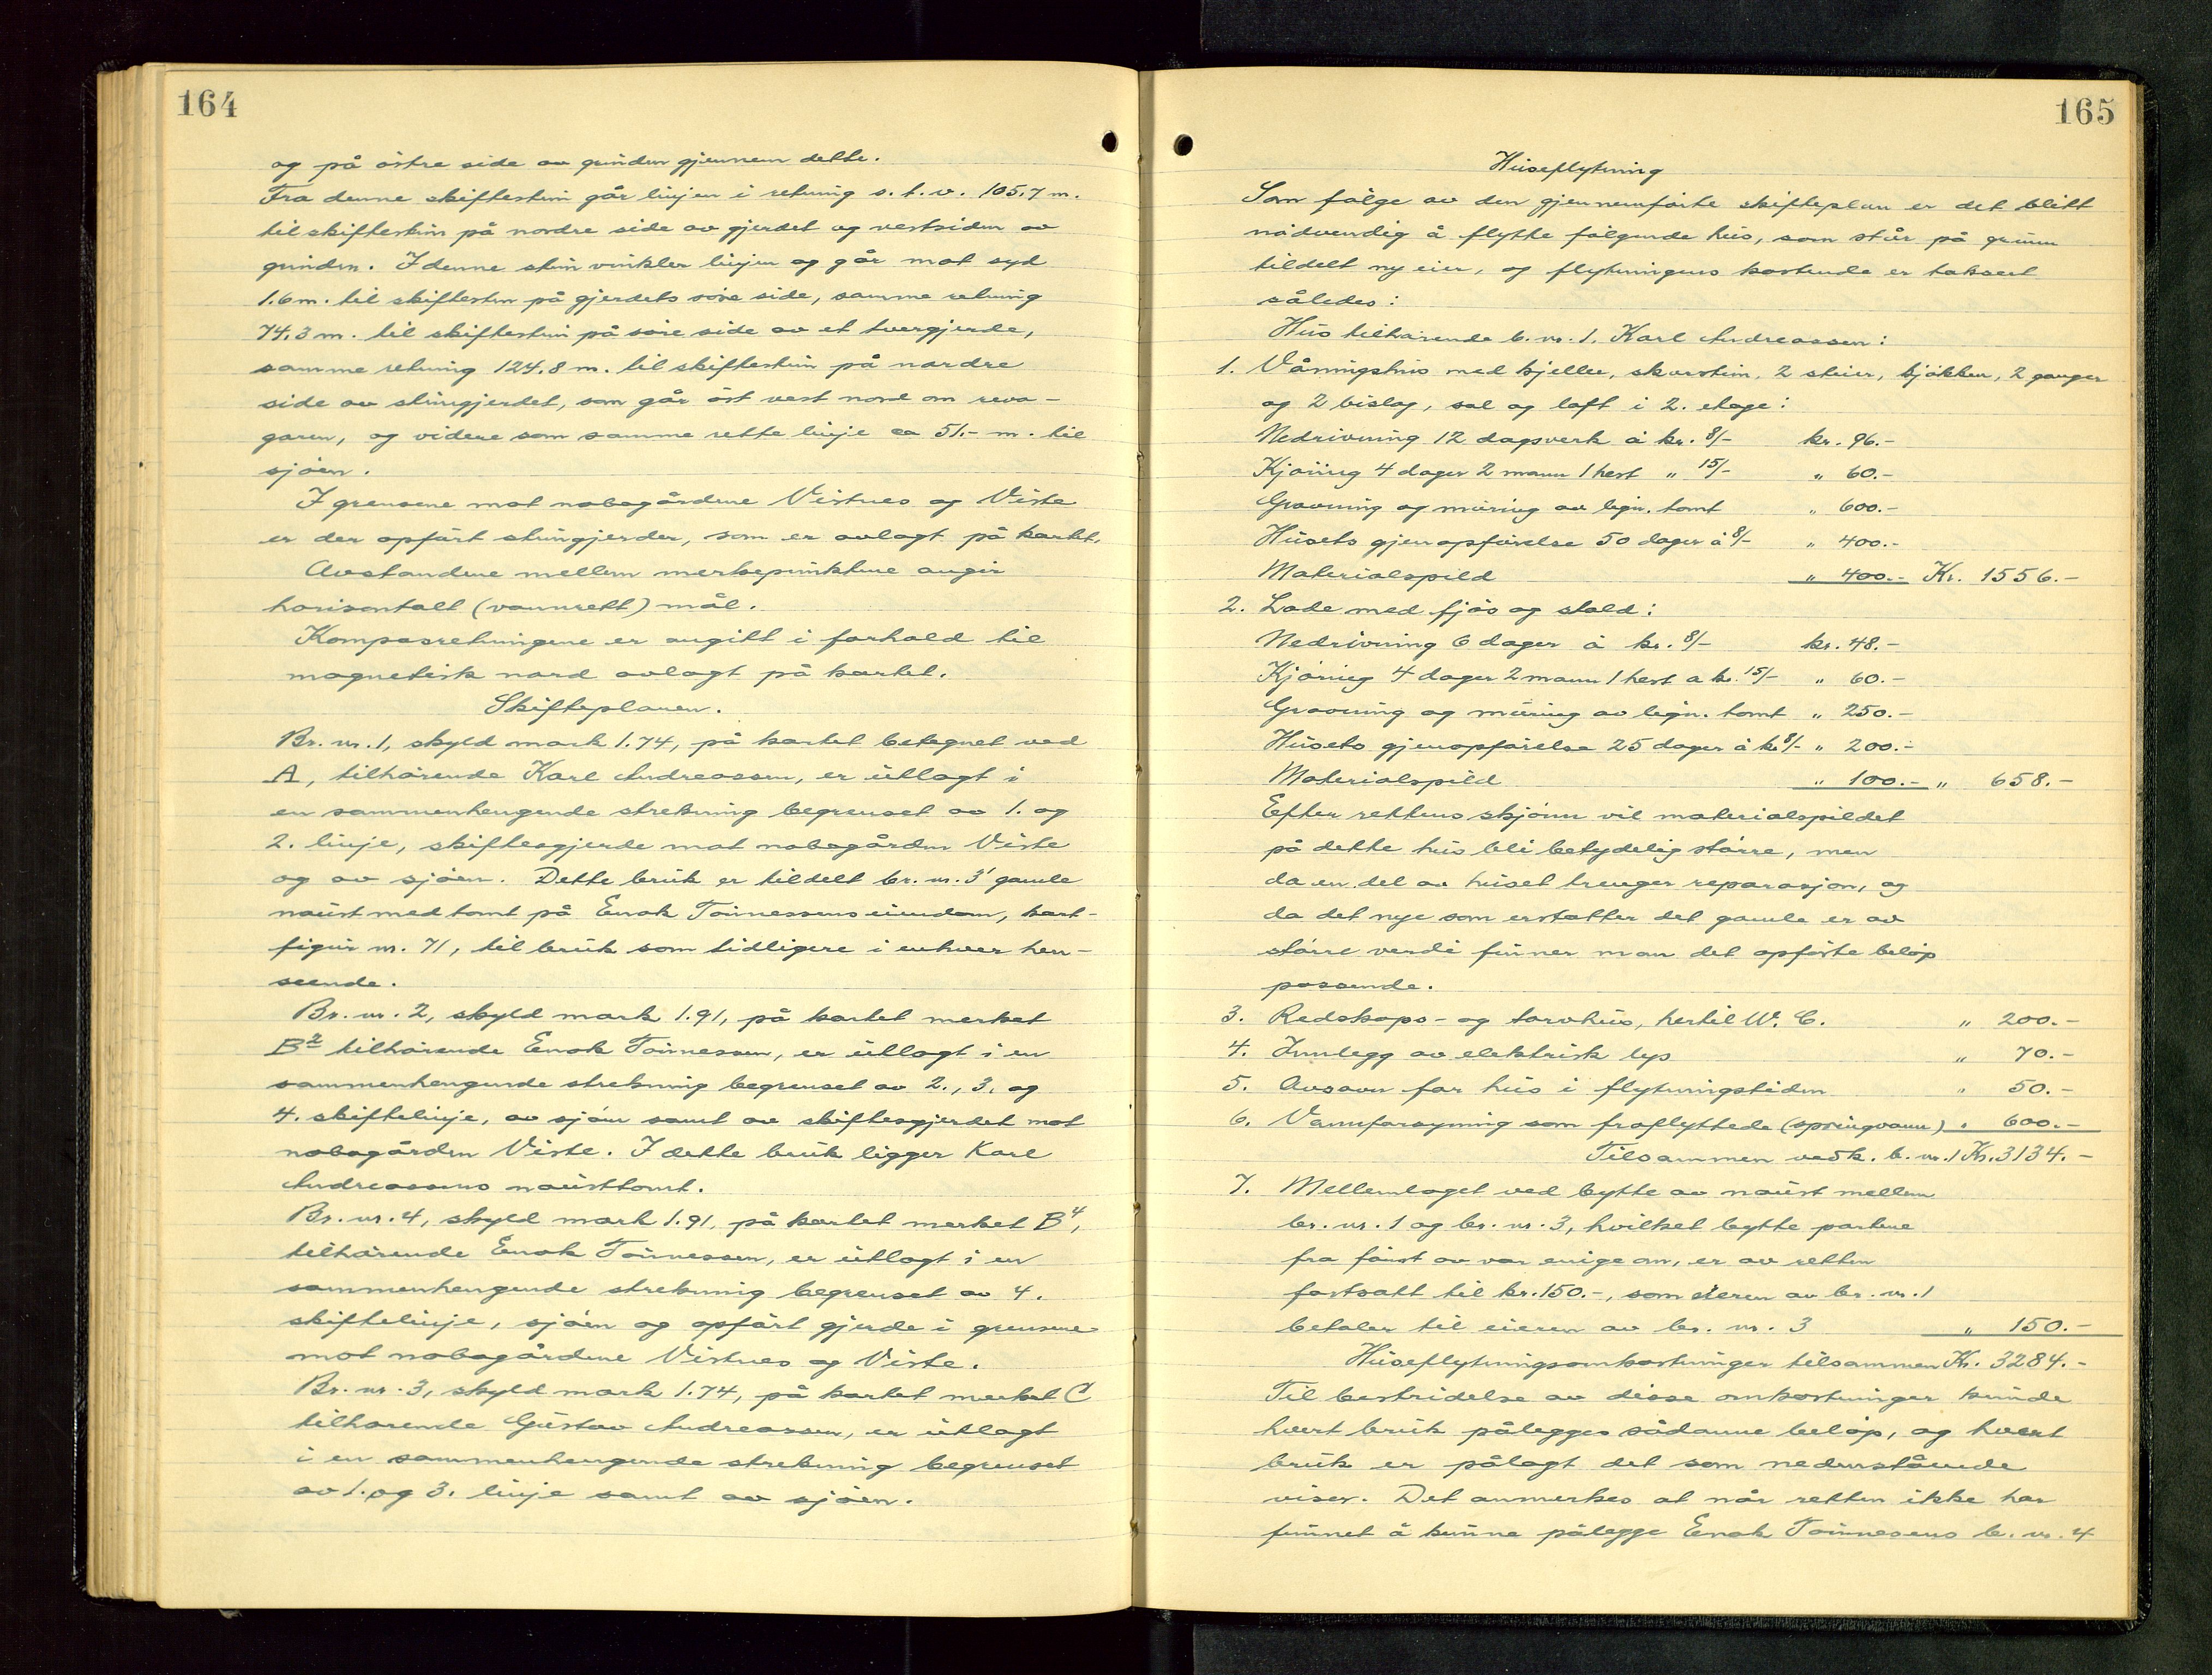 164
og på östre side av grinden gjennem dette.
Fra denne skiftestein går linjen i retning s.t.v. 105,7 m.
til skiftestein på nordre side av gjerdet og vestsiden av
grinden. I denne stein vinkler linjen og går mot syd
1.6 m. til skiftestein på gjerdets söre side, samme retning
74.3 m. til skiftestein på söre side av et tvergjerde,
samme retning 124.8 m. til skiftestein på nordre
side av steingjerdet, som går öst vest nord om reva-
garen, og videre som samme rette linje ca 51.- m. til
sjöen.
I grensene mot nabogårdene Vistnes og Viste
er der opfört steingjerder, som er avlagt på kartet.
Avstandene mellem merkepunktene angir
horisontalt (vannrett) mål.
Kompasretningene er angitt i forhold til
magnetisk nord avlagt på kartet.
Skifteplanen.
Br. nr. 1, skyld mark 1.74, på kartet betegnet ved
A, tilhörende Karl Andreassen, er utlagt i
en sammenhengende strekning begrenset av 1. og
2. linje, skiftesgjerde mot nabogården Viste
og av sjöen. Dette bruk er tildelt br. nr. 3' gamle
naust med tomt på Enok Tönnessens eiendom, kart-
figur nr. 71, til bruk som tidligere i enhver hen-
seende.
Br. nr. 2, skyld mark 1.91, på kartet merket
B2 tilhörende Enok Tönnessen, er utlagt i en
sammenhengende strekning begrenset av 2., 3. og
4. skiftelinje, av sjöen samt av skiftesgjerdet mot
nabogården Viste. I dette bruk ligger Karl
Andreassens nausttomt.
Br. nr. 4, skyld mark 1.91, på kartet merket B4,
tilhörende Enok Tönnessen, er utlagt i en
sammenhengende strekning begrenset av 4.
skiftelinje, sjöen og opfört gjerde i grensene
mot nabogårdene Vistnes og Viste.
Br. nr. 3, skyld mark 1.74, på kartet merket C
tilhörende Gustav Andreassen, er utlagt
i en sammenhengende strekning begrenset
av 1. og 3. linje samt av sjöen.
165
Huseflytning
Som fölge av den gjennemförte skifteplan er det blitt
nödvendig å flytte fölgende hus, som står på grunn
tildelt ny eier, og flytningens kostende er taksert
således:
Hus tilhörende b. nr. 1. Karl Andreassen:
1. Våningshus med kjeller, skorstein, 2 stuer, kjökken, 2 ganger
og 2 bislag, sal og loft i 2. etage:
Nedrivning 12 dagsverk à kr. 8/- kr. 96.-
Kjöring 4 dager 2 mann 1 hest " 15/- " 60.-
Gravning og muring av lign. tomt " 600.-
Husets gjenopförelse 50 dager à 8/- " 400.-
Materialspild " 400.- Kr. 1556.-
2. Lade med fjös og stald:
Nedrivning 6 dager à kr. 8/- kr. 48.-
Kjöring 4 dager 2 mann 1 hest a kr. 15/- " 60.-
Gravning og muring av lign. tomt " 250.-
Husets gjenopförelse 25 dager à kr 8/- " 200.-
Materialspild " 100.- " 658.-
Efter rettens skjönn vil materialspildet
på dette hus bli betydelig större, men
da en del av huset trenger reparasjon, og
da det nye som erstatter det gamle er av
större verdi finner man det opförte belöp
passende.
3. Redskaps- og torvhus, hertil W. C. " 200.-
4. Innlegg av elektrisk lys " 70.-
5. Avsavn for hus i flytningstiden " 50.-
6. Vannforsyning som fraflyttede (springvann) " 600.-
Tilsammen vedk. b. nr. 1 Kr. 3134.-
7. Mellemlaget ved bytte av naust mellem
br. nr. 1 og br. nr. 3, hvilket bytte partene
fra först av var enige om, er av retten
fastsatt til kr. 150.-, som eieren av br. nr. 1
betaler til eieren av br. nr. 3 " 150.-
Huseflytningsomkostninger tilsammen Kr. 3284.-
Til bestridelse av disse omkostninger kunde
hvert bruk pålegges sådanne belöp, og hvert
bruk er pålagt det som nedenstående
viser. Det anmerkes at når retten ikke har
funnet å kunne pålegge Enok Tönnesens b. nr. 4